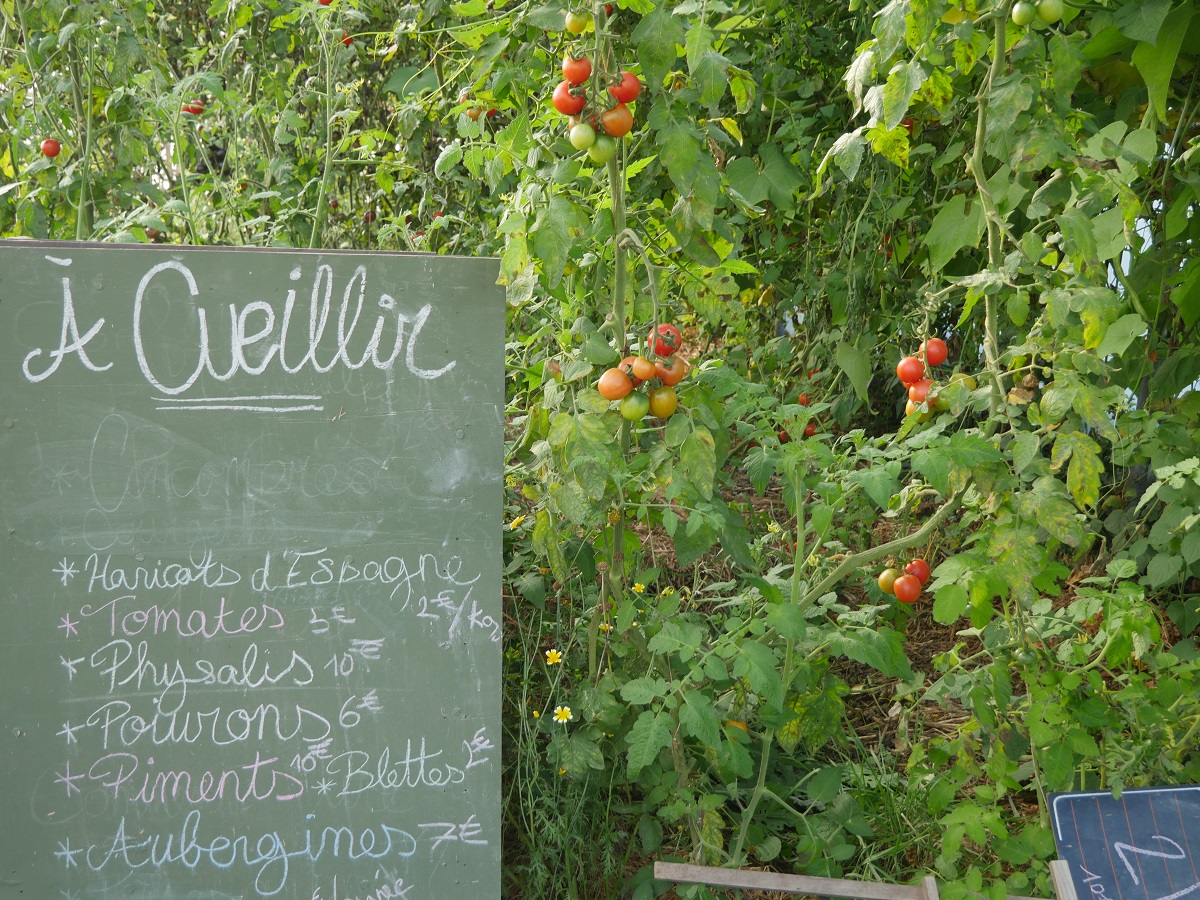 À Cueillir
* Concombres
* Haricots d'Espagne
2€/kg
* Tomates 5€
* Physalis 10€
* Poivrons 6€
* Piments 10€ * Blettes
* Aubergines 7€